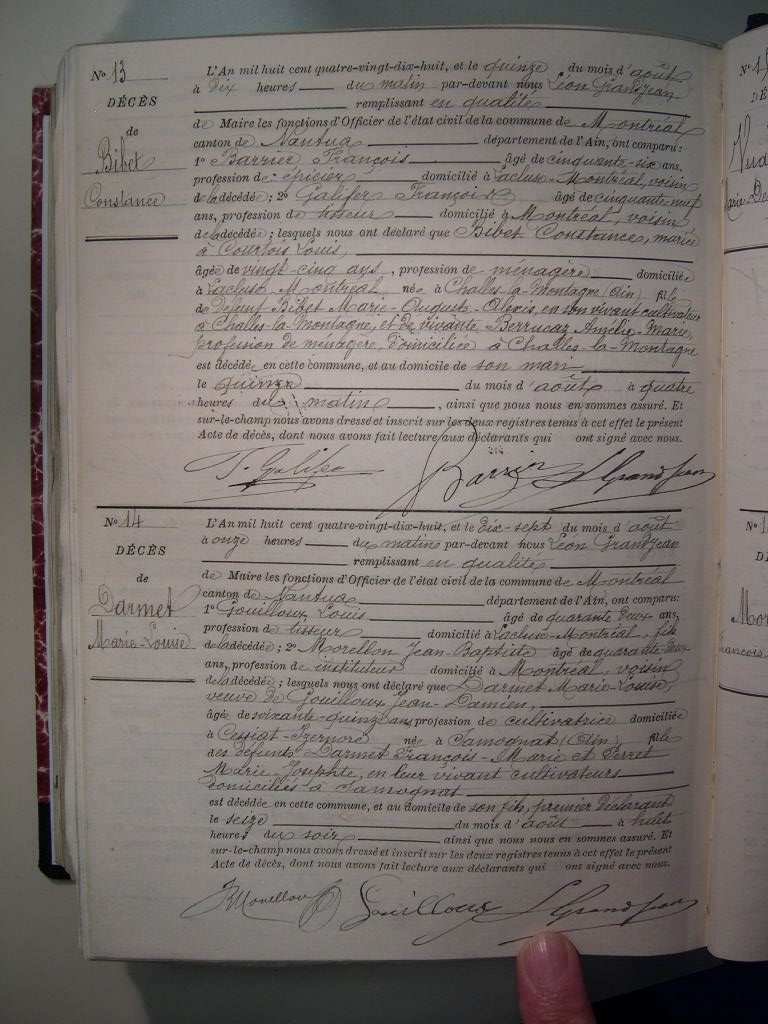 No 13
DÉCÈS
de
Bibet
Constance
L'An mil huit cent quatre-vingt-dix-huit, et le quinze du mois d'août
à dix heures du matin par-devant nous Léon Grandjean
remplissant en qualité
de Maire les fonctions d'Officier de l'état civil de la commune de Montréal
canton de Nantua département de l'Ain, ont comparu:
1o Barrier François âgé de cinquante-six ans,
profession de épicier domicilié à Lacluse-Montréal, voisin
de la décédée; 2o Galifer François âgé de cinquante neuf
ans, profession de tisseur domicilié à Montréal, voisin
de la décédée; lesquels nous ont déclaré que Bibet Constance, mariée
à Courtois Louis,
âgée de vingt cinq ans, profession de ménagère domiciliée
à Lacluse Montréal née à Challes-la-Montagne (Ain) fille
de défunt Bibet Marie- -Alexis, en son vivant cultivateur
à Challes-la-Montagne, et de vivante, Berrucaz Amélie-Marie,
profession de ménagère, domiciliée à Challes-la-Montagne
est décédée en cette commune, et au domicile de son mari
le quinze du mois d'août à quatre
heures du matin, ainsi que nous nous en sommes assuré. Et
sur-le-champ nous avons dressé et inscrit sur les deux registres tenus à cet effet le présent
Acte de décès, dont nous avons fait lecture aux déclarants qui ont signé avec nous.
Barrier L Grandjean
No 14
DÉCÈS
de
Darmet
Marie-Louise
L'An mil huit cent quatre-vingt-dix-huit, et le dix-sept du mois d'août
à onze heures du matin par-devant nous Léon Grandjean
remplissant en qualité
de Maire les fonctions d'Officier de l'état civil de la commune de Montréal
canton de Nantua département de l'Ain, ont comparu:
1o Gouilloux Louis âgé de quarante deux ans,
profession de tisseur domicilié à Lacluse-Montréal, fils
de la décédée; 2o Morellon Jean-Baptiste âgé de quarante deux
ans, profession de instituteur domicilié à Montréal, voisin
de la décédée; lesquels nous ont déclaré que Darmet Marie-Louise,
veuve de Gouilloux Jean-Damien,
âgée de soixante-quinze ans, profession de cultivatrice domiciliée
à Cessiat-Izernore née à Samognat (Ain) fille
des défunts Darmet François-Marie et Perret
Marie-Josephte, en leur vivant cultivateurs
domiciliés à Samognat
est décédée en cette commune, et au domicile de son fils, premier déclarant
le seize du mois d'août à huit
heures du soir ainsi que nous nous en sommes assuré. Et
sur-le-champ nous avons dressé et inscrit sur les deux registres tenus à cet effet le présent
Acte de décès, dont nous avons fait lecture aux déclarants qui ont signé avec nous.
Morellon Gouilloux L Grandjean